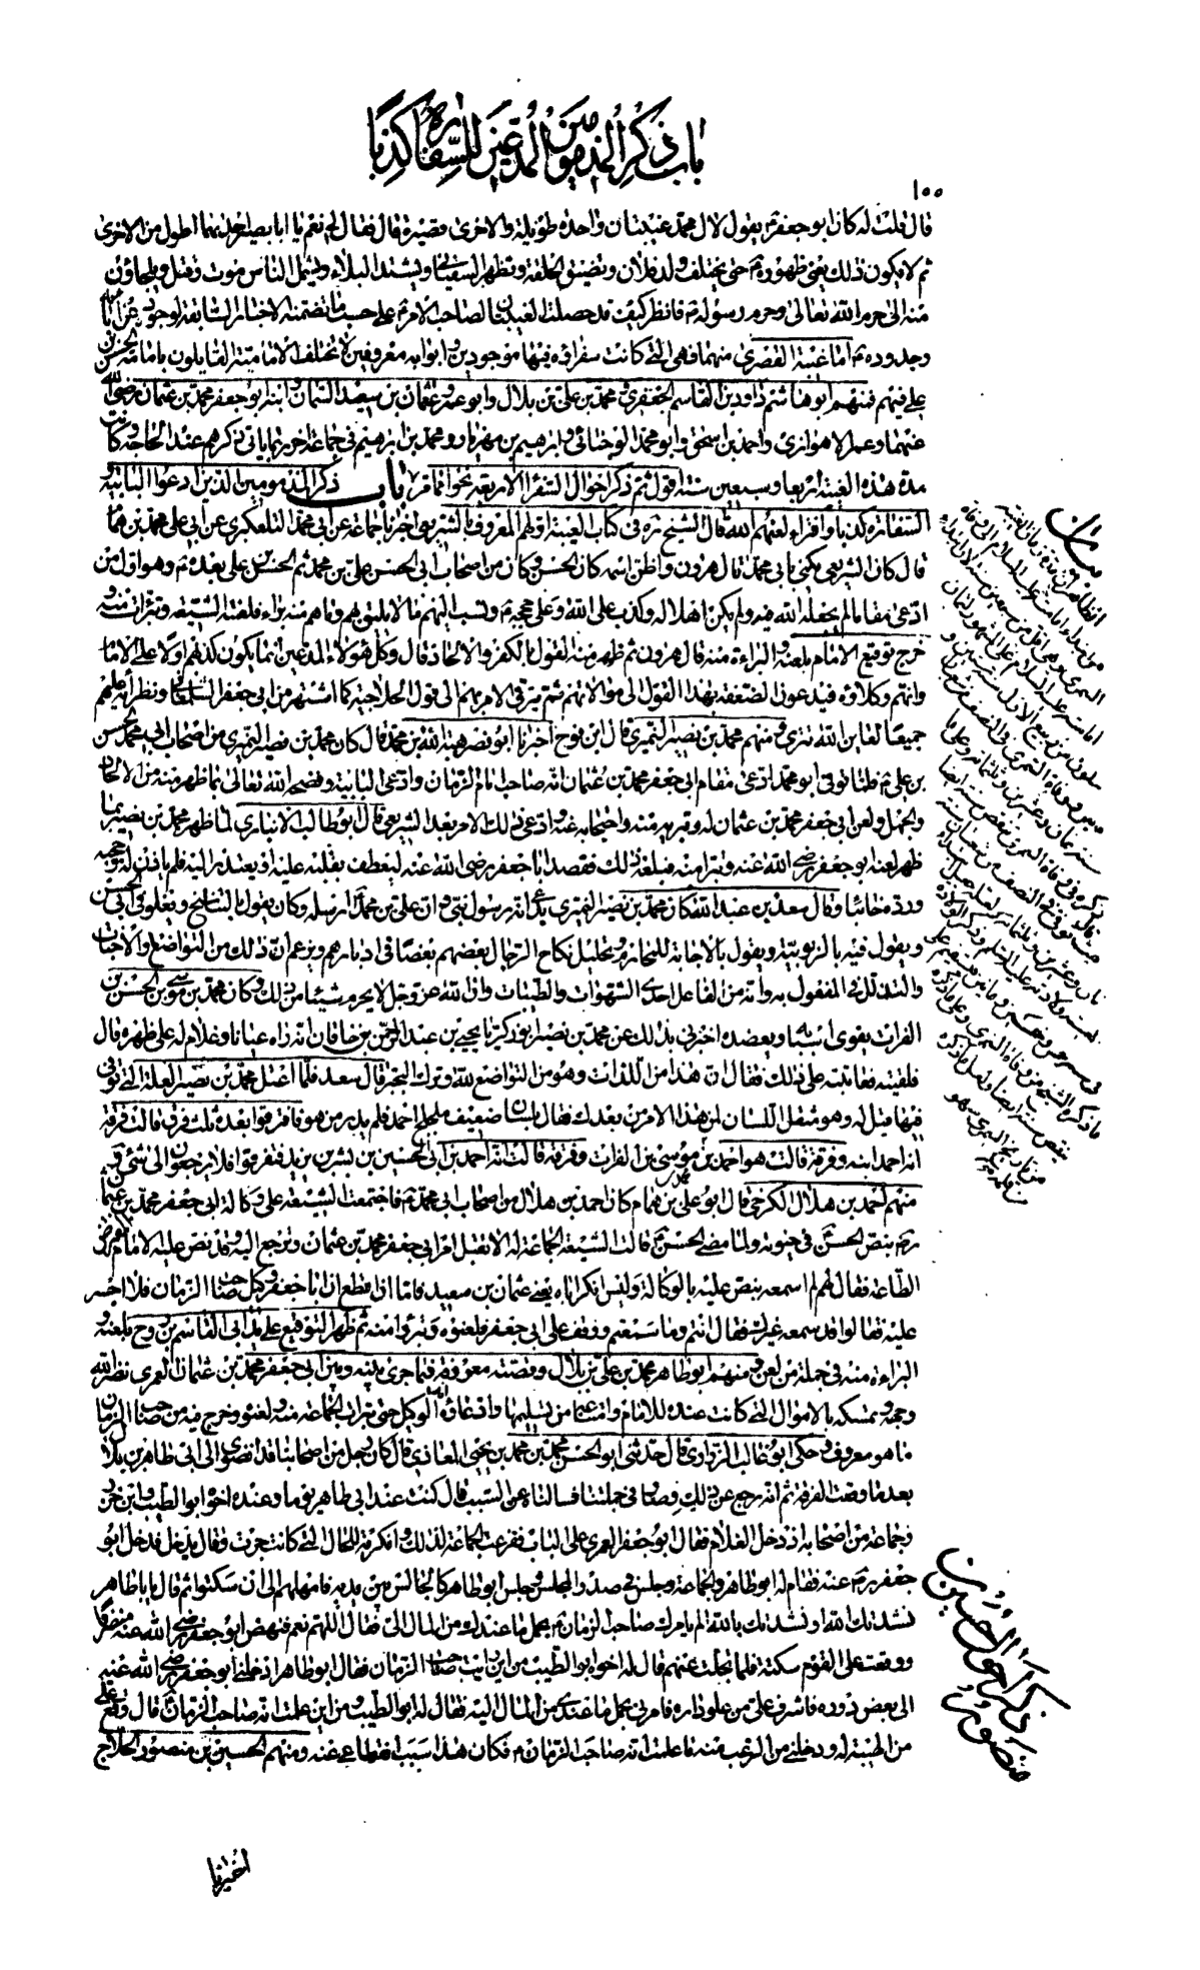 باب ذكر المذمومين المدعين للسفارة كذبا
١٠٠
قال قلت له كان ابو جعفر ع يقول لال محمد غيبتان واحدة طويلة والاخرى قصيرة قال فقال لي نعم يا ابا بصير احديهما اطول من الاخرى
ثم لا يكون ذلك يعني ظهوره ع حتى يختلف ولد فلان وتضيق الحلقة ويظهر السفياني ويشتد البلاء ويشمل الناس موت وقتل ويلجاون
منه الى حرم الله تعالى وحرم رسوله ص فانظر كيف قد حصلت الغيبتان لصاحب الامر ع على حسب ما تضمنه الاخبار السابقة لوجوده عن ابائه
وجدوده ع اما غيبة القصرى منهما فهي التي كانت سفراؤه فيها موجودين وابوابه معروفين لا تختلف الامامية القايلون بامامة الحسن بن
علي فيهم فمنهم ابو هاشم داود بن القاسم الجعفري ومحمد بن علي بن بلال وابو عمرو عثمان بن سعيد السمان وابنه ابو جعفر محمد بن عثمان رضي الله
عنهما وعمر الاهوازي واحمد بن اسحق وابو محمد الوجنائي وابرهيم بن مهزيار ومحمد بن ابرهيم في جماعة اخر ربما ياتي ذكرهم عند الحاجة وكانت
مدة هذه الغيبة اربعا وسبعين سنة اقول ثم ذكر احوال السفراء الاربعة نحوا مما مر باب ذكر المذمومين الذين ادعوا البابية و
السفارة كذبا وافتراء لعنهم الله قال الشيخ ره في كتاب الغيبة اولهم المعروف بالشريعي اخبرنا جماعة عن ابي محمد التلعكبري عن ابي علي محمد بن همام
قال كان الشريعي يكنى بابي محمد قال هرون واظن اسمه كان الحسن وكان من اصحاب ابي الحسن علي بن محمد ثم الحسن بن علي بعده ع وهو اول من
ادعى مقاما لم يجعله الله فيه ولم يكن اهلا له وكذب على الله وعلى حججه ع ونسب اليهم ما لا يليق بهم وما هم منه براء فلعنته الشيعة وتبرات منه و
خرج توقيع الامام بلعنه والبراءة منه قال هرون ثم ظهر منه القول بالكفر والالحاد قال وكل هؤلاء المدعين انما يكون كذبهم اولا على الامام
وانهم وكلاؤه فيدعون الضعفة بهذا القول الى موالاتهم ثم يترقى الامر بهم الى قول الحلاجية كما اشتهر من ابي جعفر الشلمغاني ونظرائه عليهم
جميعا لعاين الله تترى ومنهم محمد بن نصير النميري قال ابن نوح اخبرنا ابو نصر هبة الله بن محمد قال كان محمد بن نصير النميري من اصحاب ابي محمد الحسن
بن علي ع فلما توفي ابو محمد ادعى مقام ابي جعفر محمد بن عثمان انه صاحب امام الزمان وادعى البابية وفضحه الله تعالى بما ظهر منه من الالحاد
والجهل ولعن ابي جعفر محمد بن عثمان له وتبريه منه واحتجابه عنه وادعى ذلك الامر بعد الشريعي قال ابو طالب الانباري لما ظهر محمد بن نصير بما
ظهر لعنه ابو جعفر رضي الله عنه وتبرا منه فبلغه ذلك فقصد ابا جعفر رضي الله عنه ليعطف بقلبه عليه او يعتذر اليه فلم ياذن له وحجبه
ورده خائبا وقال سعد بن عبد الله كان محمد بن نصير النميري يدعي انه رسول نبي وان علي بن محمد ع ارسله وكان يقول بالتناسخ ويغلو في ابي الحسن
ويقول فيه بالربوبية ويقول بالاجابة للمحارم وتحليل نكاح الرجال بعضهم بعضا في ادبارهم ويزعم ان ذلك من التواضع والاخبات
والتذلل في المفعول به وانه من الفاعل احدى الشهوات والطيبات وان الله عز وجل لا يحرم شيئا من ذلك وكان محمد بن موسى بن الحسن بن
الفرات يقوي اسبابه ويعضده اخبرني بذلك عن محمد بن نصير ابو زكريا يحيى بن عبد الرحمن بن خاقان انه راه عيانا وغلام له على ظهره قال
فلقيته فعاتبته على ذلك فقال ان هذا من اللذات وهو من التواضع لله وترك التجبر قال سعد فلما اعتل محمد بن نصير العلة التي توفي
فيها قيل له وهو مثقل اللسان لمن هذا الامر من بعدك فقال بلسان ضعيف ملجلج احمد فلم يدر من هو فافترقوا بعده ثلث فرق قالت فرقة
انه احمد ابنه وفرقة قالت هو احمد بن محمد بن موسى بن الفرات وفرقة قالت انه احمد بن ابي الحسين بن بشر بن يزيد فتفرقوا فلا يرجعون الى شئ و
منهم احمد بن هلال الكرخي قال ابو علي بن همام كان احمد بن هلال من اصحاب ابي محمد ع فاجتمعت الشيعة على وكالة ابي جعفر محمد بن عثمان
ره بنص الحسن ع في حيوته ولما مضى الحسن ع قالت الشيعة الجماعة له الا تقبل امر ابي جعفر محمد بن عثمان وترجع اليه وقد نص عليه الامام المفترض
الطاعة فقال لهم لم اسمعه ينص عليه بالوكالة وليس انكر اباه يعني عثمان بن سعيد فاما ان اقطع ان ابا جعفر وكيل صاحب الزمان فلا اجسر
عليه فقالوا قد سمعه غيرك فقال انتم وما سمعتم ووقف على ابي جعفر فلعنوه وتبرؤا منه ثم ظهر التوقيع على يد ابي القاسم بن روح بلعنه و
البراءة منه في جملة من لعن ومنهم ابو طاهر محمد بن علي بن بلال وقصته معروفة فيما جرى بينه وبين ابي جعفر محمد بن عثمان العمري نضر الله
وجهه وتمسكه بالاموال التي كانت عنده للامام وامتناعه من تسليمها وادعائه انه الوكيل حتى تبرات الجماعة منه ولعنوه وخرج فيه من صاحب الزمان
ما هو معروف وحكى ابو غالب الزراري قال حدثني ابو الحسن محمد بن محمد بن يحيى المعاذي قال كان رجل من اصحابنا قد انضوى الى ابي طاهر بن بلال
بعد ما وقعت الفرقة ثم انه رجع عن ذلك وصار في جملتنا فسالناه عن السبب قال كنت عند ابي طاهر يوما وعنده اخوه ابو الطيب وابن حرز
وجماعة من اصحابه اذ دخل الغلام فقال ابو جعفر العمري على الباب ففزعت الجماعة لذلك وانكرته للحال التي كانت جرت وقال يدخل فدخل ابو
جعفر ره عنه فقام له ابو طاهر والجماعة وجلس في صدر المجلس وجلس ابو طاهر كالجالس بين يديه فامهلهم الى ان سكتوا ثم قال يا با طاهر
نشدتك الله او نشدتك بالله الم يامرك صاحب الزمان ع بحمل ما عندك من المال الي فقال اللهم نعم فنهض ابو جعفر رضي الله عنه منصرفا
ووقعت على القوم سكتة فلما تجلت عنهم قال له اخوه ابو الطيب من اين رايت صاحب الزمان فقال ابو طاهر ادخلني ابو جعفر رضي الله عنه
الى بعض دوره فاشرف علي من علو داره فامرني بحمل ما عندي من المال اليه فقال له ابو الطيب ومن اين علمت انه صاحب الزمان ع قال وقع علي
من الهيبة له ودخلني من الرعب منه ما علمت انه صاحب الزمان ع فكان هذا سبب انقطاعي عنه ومنهم الحسين بن منصور الحلاج
ذكر احوال حسين بن
منصور
اخبرنا